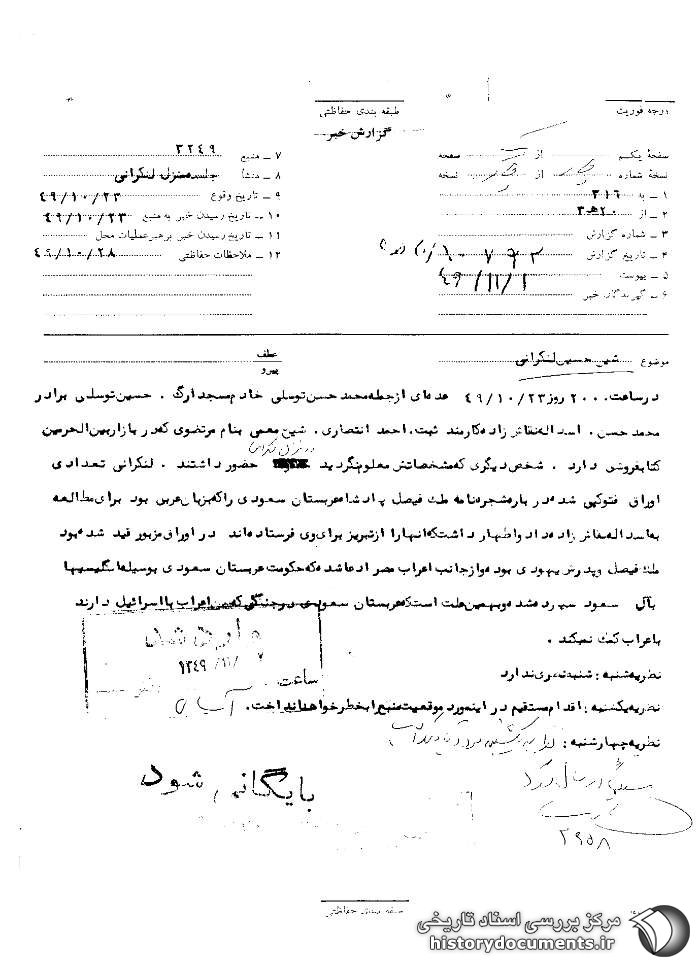 درجه فوریت
طبقه بندی حفاظتی
گزارش خبر
صفحهٔ یکم از صفحه
نسخهٔ شماره از نسخه
۱ ـ به ۳۱۶
۲ ـ از ۲۰ه۳
۳ ـ شماره گزارش
۴ ـ تاریخ گزارش
۵ ـ پیوست ۴۹/۱۱/۱
۶ ـ گیرندگان خبر
۷ ـ منبع ۳۲۴۹
۸ ـ منشأ جلسه منزل لنکرانی
۹ ـ تاریخ وقوع ۴۹/۱۰/۲۳
۱۰ ـ تاریخ رسیدن خبر به منبع ۴۹/۱۰/۲۳
۱۱ ـ تاریخ رسیدن خبر برهبر عملیات محل
۱۲ ـ ملاحظات حفاظتی ۴۹/۱۰/۲۸
موضوع شیخ حسین لنکرانی
عطف
پیرو
در ساعت ۲۰۰۰ روز ۴۹/۱۰/۲۳ عده‌ای از جمله محمد حسن توسلی خادم مسجد ارگ ، حسین توسلی برادر
محمد حسن ، اسداله صفائر زاده کارمند ثبت ، احمد انتصاری ، شیخ معمی بنام مرتضوی که در بازار بین الحرمین
کتابفروشی دارد ، شخص دیگری که مشخصاتش معلوم نگردید در منزل لنکرانی حضور داشتند ، لنکرانی تعدادی
اوراق فتوکپی شده در باره شجره نامه ملک فیصل پادشاه عربستان سعودی را که بزبان عربی بود برای مطالعه
به اسداله صفائر زاده داد و اظهار داشت که اینها را از تبریز برای وی فرستاده اند در اوراق مزبور قید شده بود
ملک فیصل و پدرش یهودی بوده و از جانب اعراب مصر ادعا شده که حکومت عربستان سعودی بوسیله انگلیسیها
بآل سعود سپرده شده و بهمین علت است که عربستان سعودی در جنگی که بین اعراب با اسرائیل دارند
باعراب کمک نمیکند .
نظریه شنبه : شنبه نظری ندارد
نظریه یکشنبه : اقدام مستقیم در اینمورد موقعیت منبع را بخطر خواهد انداخت .
نظریه چهارشنبه :
وارد شد
۱۳۴۹/۱۱/۷
ساعت
بایگانی شود
۲۹۵۸
طبقه بندی حفاظتی
مرکز بررسی اسناد تاریخی
historydocuments.ir